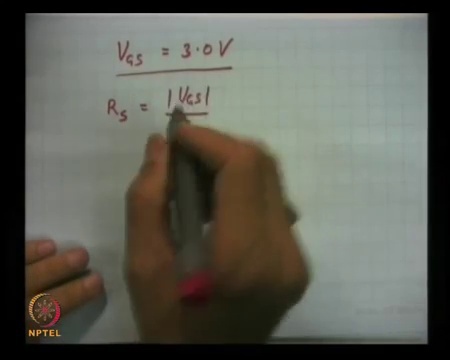 V_GS = 3.0 V
R_S = |V_GS|
NPTEL